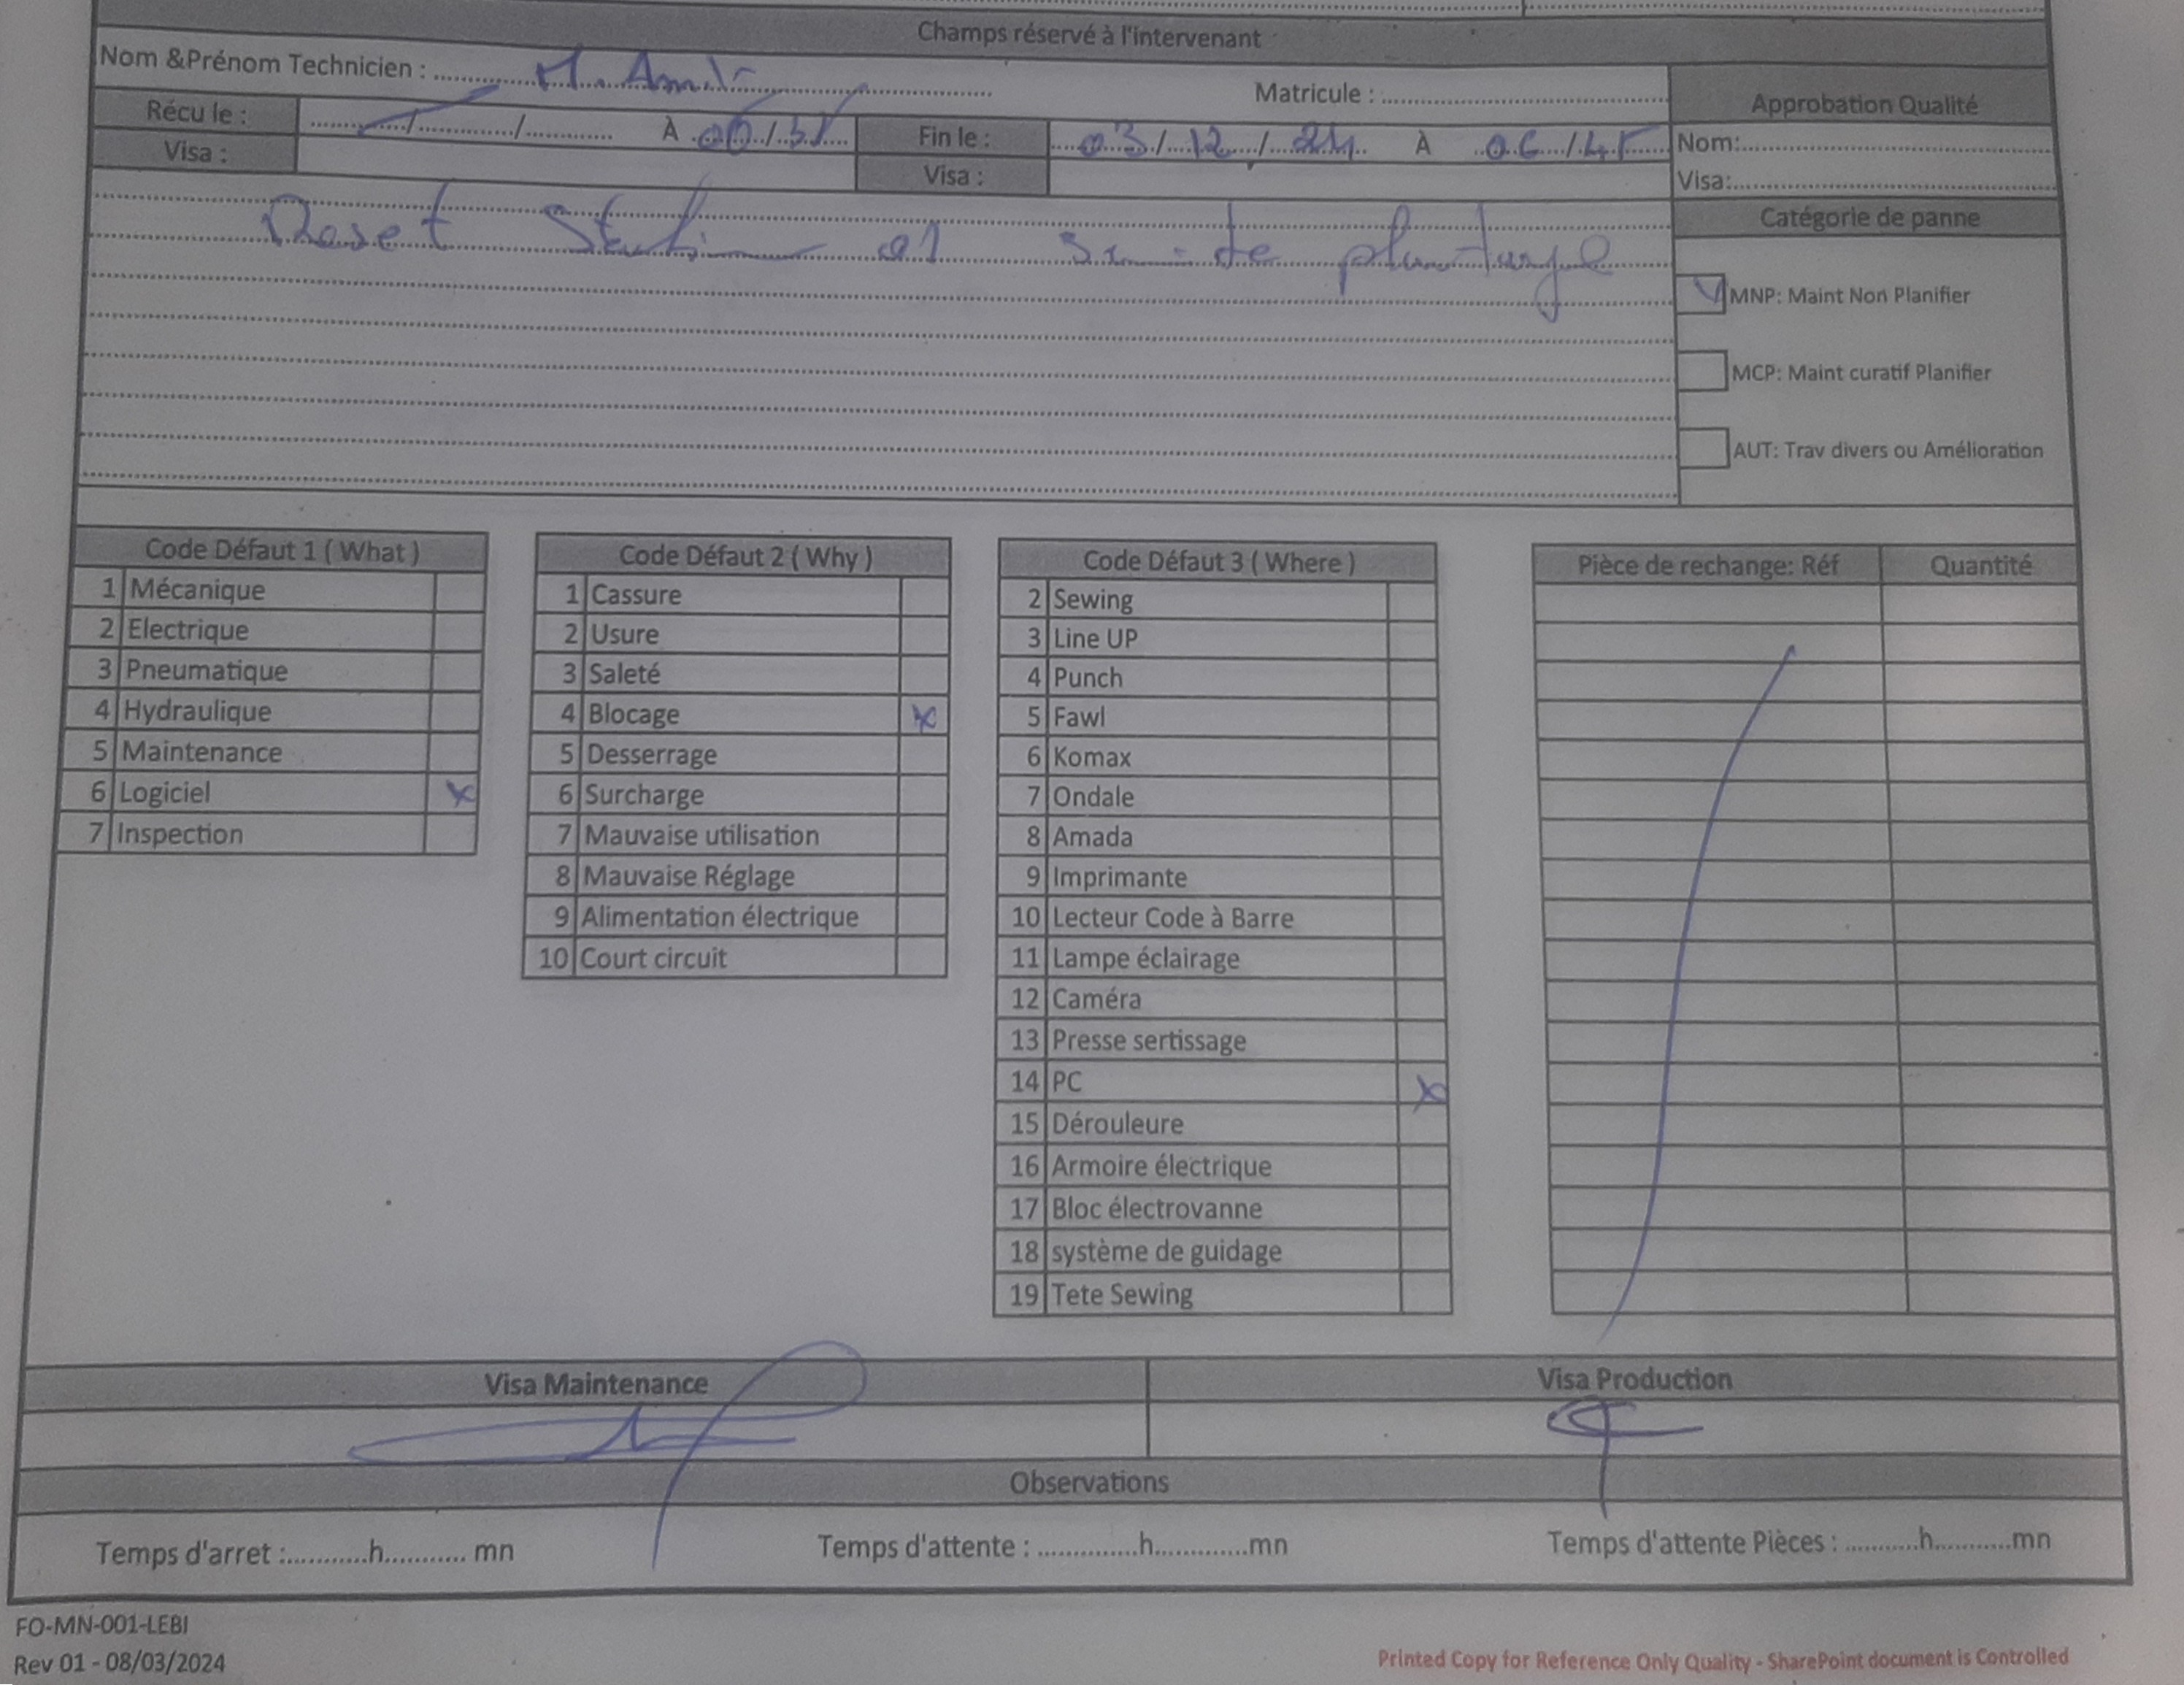 Champs réservé à l'intervenant
Nom &Prénom Technicien : M. Amir
Matricule :
Approbation Qualité
Récu le : / / À /
Fin le : 03 / 12 / 24 À 06 / 45
Nom:
Visa :
Visa :
Visa:
Reset Station 01 suite plantage
Catégorie de panne
MNP: Maint Non Planifier
MCP: Maint curatif Planifier
AUT: Trav divers ou Amélioration
Code Défaut 1 ( What )
1 Mécanique
2 Electrique
3 Pneumatique
4 Hydraulique
5 Maintenance
6 Logiciel x
7 Inspection
Code Défaut 2 ( Why )
1 Cassure
2 Usure
3 Saleté
4 Blocage x
5 Desserrage
6 Surcharge
7 Mauvaise utilisation
8 Mauvaise Réglage
9 Alimentation électrique
10 Court circuit
Code Défaut 3 ( Where )
2 Sewing
3 Line UP
4 Punch
5 Fawl
6 Komax
7 Ondale
8 Amada
9 Imprimante
10 Lecteur Code à Barre
11 Lampe éclairage
12 Caméra
13 Presse sertissage
14 PC x
15 Dérouleure
16 Armoire électrique
17 Bloc électrovanne
18 système de guidage
19 Tete Sewing
Pièce de rechange: Réf Quantité
Visa Maintenance
Visa Production
Observations
Temps d'arret : h mn
Temps d'attente : h mn
Temps d'attente Pièces : h mn
FO-MN-001-LEBI
Rev 01 - 08/03/2024
Printed Copy for Reference Only Quality - SharePoint document is Controlled